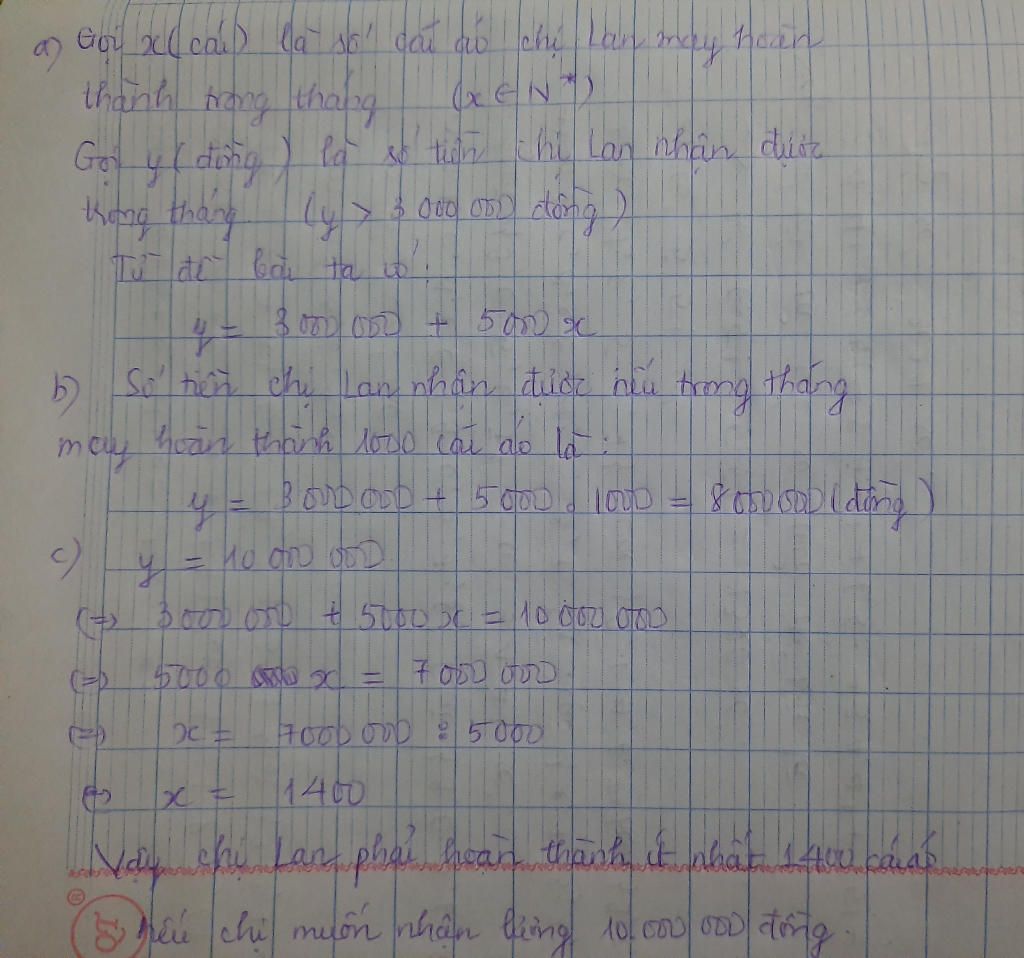 a) Gọi x(cái) là số cái áo chị Lan may hoàn
thành trong tháng (x ∈ N*)
Gọi y (đồng) là số tiền chị Lan nhận được
trong tháng (y > 3 000 000 đồng)
Từ đề bài ta có:
y = 3 000 000 + 5000 x
b) Số tiền chị Lan nhận được nếu trong tháng
may hoàn thành 1000 cái áo là:
y = 3 000 000 + 5000 . 1000 = 8 000 000 (đồng)
c) y = 10 000 000
(=) 3 000 000 + 5000 x = 10 000 000
(=) 5000 x = 7 000 000
(=) x = 7000 000 : 5000
(=) x = 1400
Vậy chị Lan phải hoàn thành ít nhất 1400 cái áo
nếu chị muốn nhận lương 10.000 000 đồng.